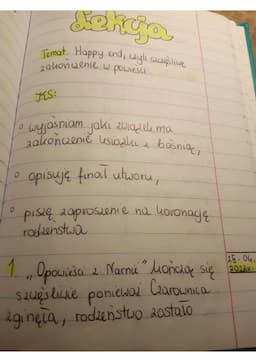 Lekcja
Temat. Happy end, czyli szczęśliwe
zakończenie w powieści
NCS:
• wyjaśniam jaki związek ma
zakończenie książki z baśnią,
• opisuję finał utworu,
• piszę zaproszenie na koronację
rodzeństwa
25.04.
1 „Opowieści z Narnii" kończą się 2022r.
szczęśliwie ponieważ Czarownica
zginęła, rodzeństwo zostało